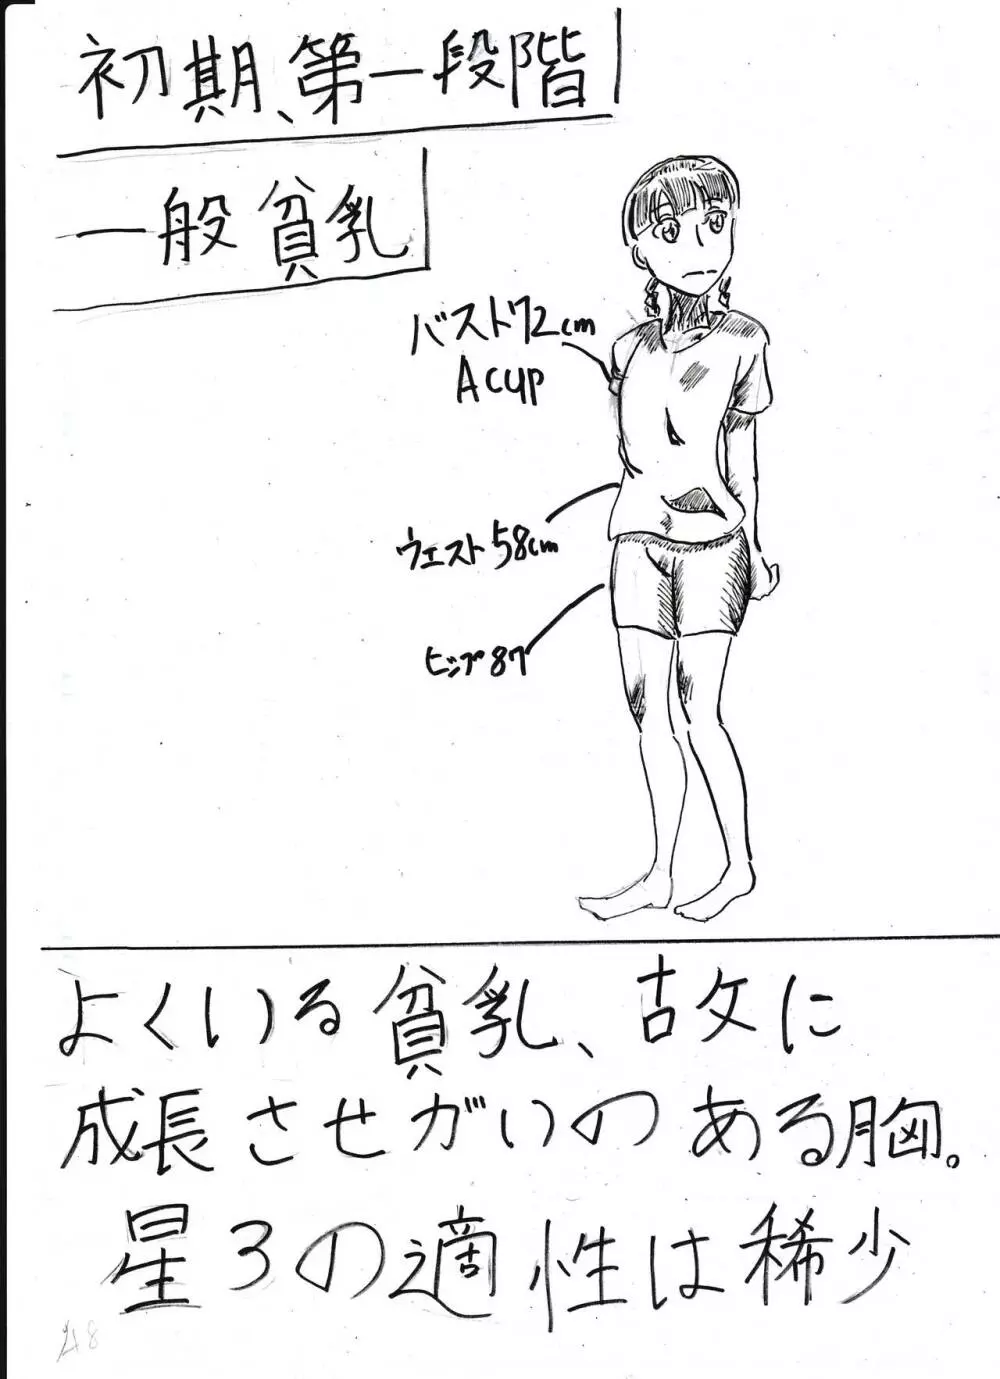 初期、第一段階
一般貧乳
バスト72cm
Acup
ウエスト58cm
ヒップ87
よくいる貧乳、故に
成長させがいのある胸。
星3の適性は稀少
48